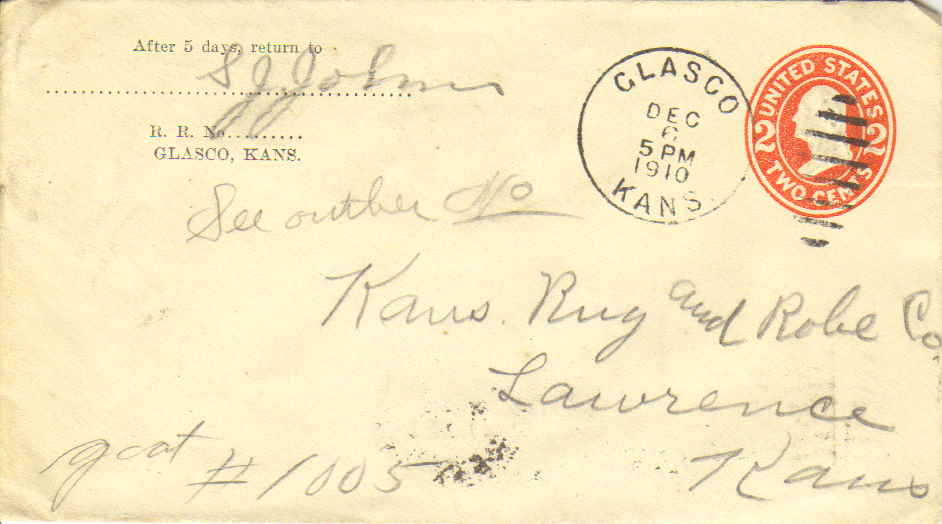 After 5 days, return to
S J Johns
R. R. No.
GLASCO, KANS.
GLASCO
DEC
6
5 PM
1910
KANS.
UNITED STATES
2 2
TWO CENTS
See
No
Kans. Rug and Robe Co
Lawrence
Kans
# 1005